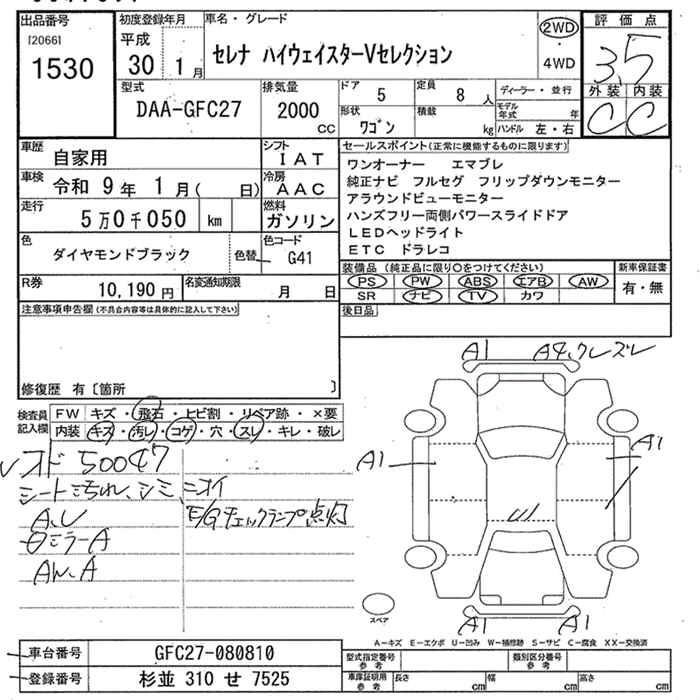 出品番号
[2066]
1530
初度登録年月
平成
30 1月
車名・グレード
セレナ ハイウェイスターVセレクション
2WD
・
4WD
評価点
3.5
外装 内装
C C
型式
DAA-GFC27
排気量
2000 cc
ドア 5
定員 8 人
形状 ワゴン
積載 kg
ディーラー・並行
モデル年式 年
ハンドル 左・右
車歴 自家用
シフト IAT
車検 令和 9年 1月( 日)
冷房 AAC
走行 5万0千050 km
燃料 ガソリン
色 ダイヤモンドブラック
色替
色コード G41
R券 10,190円
名変通知期限 月 日
セールスポイント(正常に機能するものに限ります)
ワンオーナー エマブレ
純正ナビ フルセグ フリップダウンモニター
アラウンドビューモニター
ハンズフリー両側パワースライドドア
LEDヘッドライト
ETC ドラレコ
装備品(純正品に限り○をつけてください)
新車保証書
PS PW ABS エアB AW
SR ナビ TV カワ
有・無
後日品
注意事項申告欄(不具合内容等は具体的に記入して下さい)
修復歴 有〔箇所 〕
検査員記入欄
FW キズ・飛石・ヒビ割・リペア跡・×要
内装 キズ・汚レ・コゲ・穴・スレ・キレ・破レ
オド 50047
シート汚れ、シミ、ニオイ
A、U
E/Gチェックランプ点灯
ミラーA
AW、A
A1 A4、クレズレ
A1
A1
A1 A1
スペア
A−キズ E−エクボ U−凹み W−補修跡 S−サビ C−腐食 XX−交換済
車台番号 GFC27-080810
登録番号 杉並 310 せ 7525
型式指定番号 参考
類別区分番号 参考
車庫証明用 参考
長さ cm 幅 cm 高さ cm